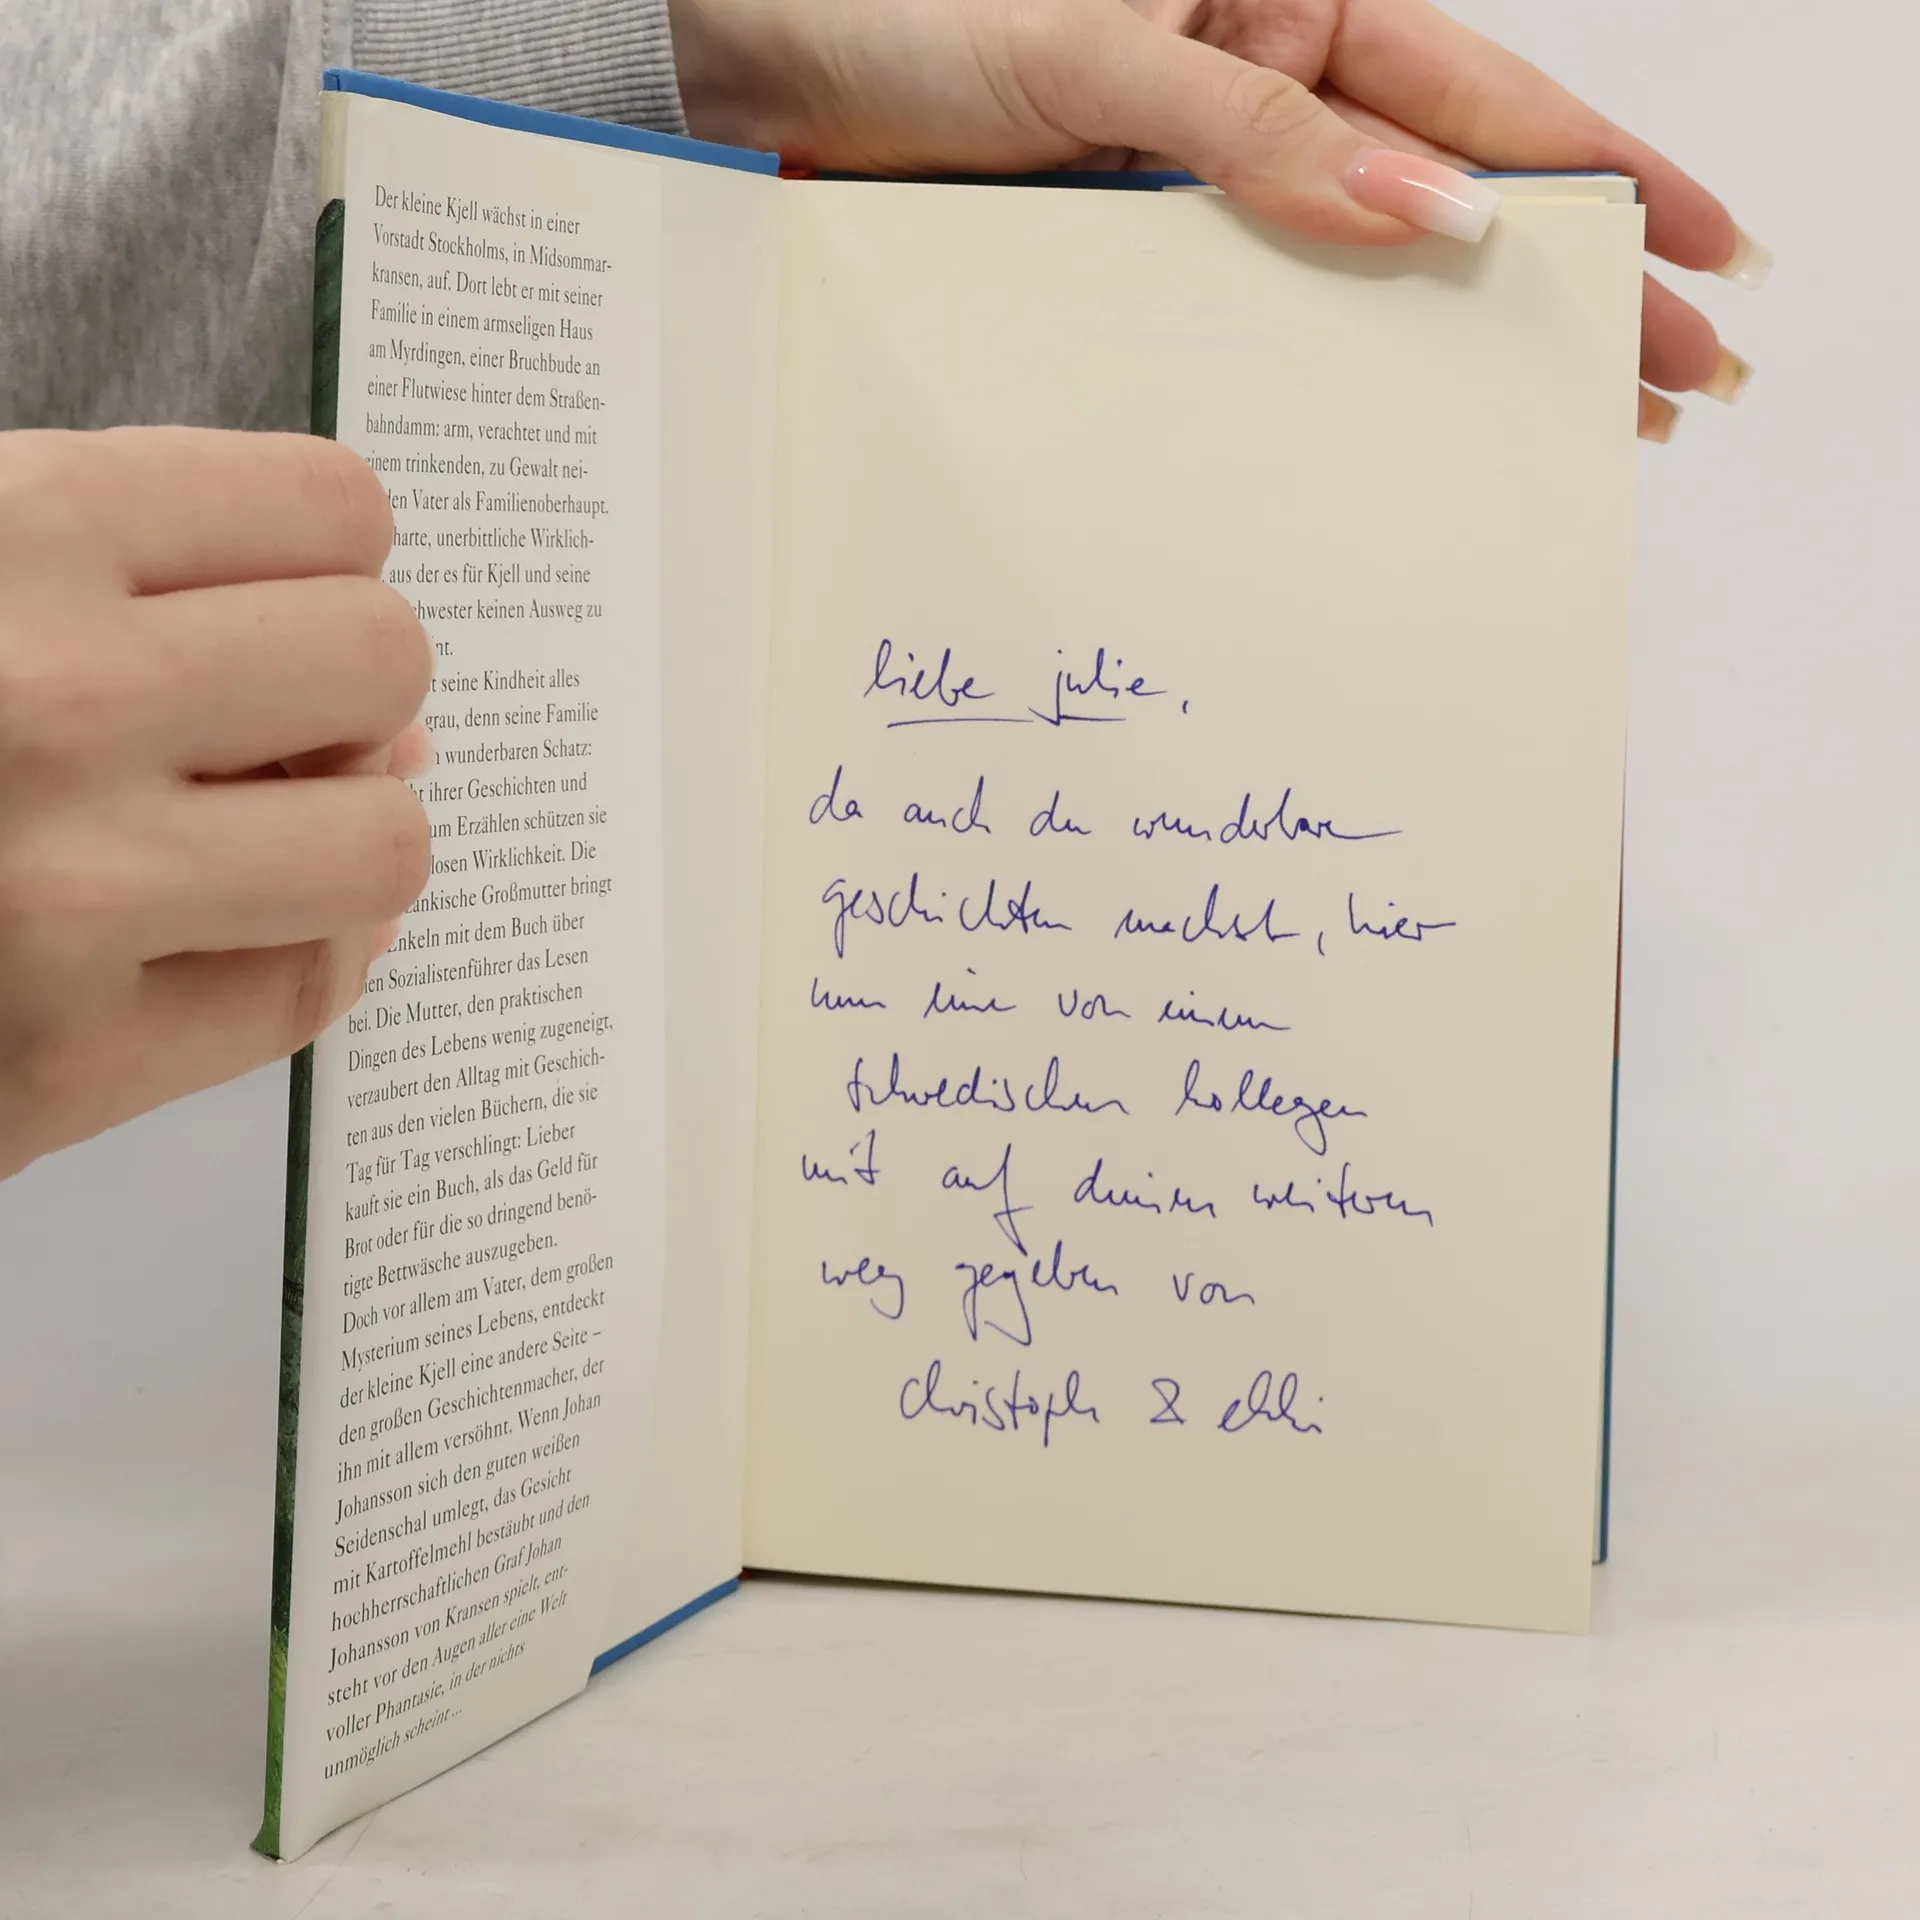 Der kleine Kjell wächst in einer
Vorstadt Stockholms, in Midsommar-
kransen, auf. Dort lebt er mit seiner
Familie in einem armseligen Haus
am Myrdingen, einer Bruchbude an
einer Flutwiese hinter dem Straßen-
bahndamm: arm, verachtet und mit
einem trinkenden, zu Gewalt nei-
den Vater als Familienoberhaupt.
harte, unerbittliche Wirklich-
aus der es für Kjell und seine
hwester keinen Ausweg zu
nt.
t seine Kindheit alles
grau, denn seine Familie
wunderbaren Schatz:
ht ihrer Geschichten und
um Erzählen schützen sie
losen Wirklichkeit. Die
zänkische Großmutter bringt
Enkeln mit dem Buch über
nen Sozialistenführer das Lesen
bei. Die Mutter, den praktischen
Dingen des Lebens wenig zugeneigt,
verzaubert den Alltag mit Geschich-
ten aus den vielen Büchern, die sie
Tag für Tag verschlingt: Lieber
kauft sie ein Buch, als das Geld für
Brot oder für die so dringend benö-
tigte Bettwäsche auszugeben.
Doch vor allem am Vater, dem großen
Mysterium seines Lebens, entdeckt
der kleine Kjell eine andere Seite –
den großen Geschichtenmacher, der
ihn mit allem versöhnt. Wenn Johan
Johansson sich den guten weißen
Seidenschal umlegt, das Gesicht
mit Kartoffelmehl bestäubt und den
hochherrschaftlichen Graf Johan
Johansson von Kransen spielt, ent-
steht vor den Augen aller eine Welt
voller Phantasie, in der nichts
unmöglich scheint ...
liebe julie,
da auch du wunderbare
geschichten machst, hier
nun eine von einem
schwedischen kollegen
mit auf deinen weiteren
weg gegeben von
christoph & ekki